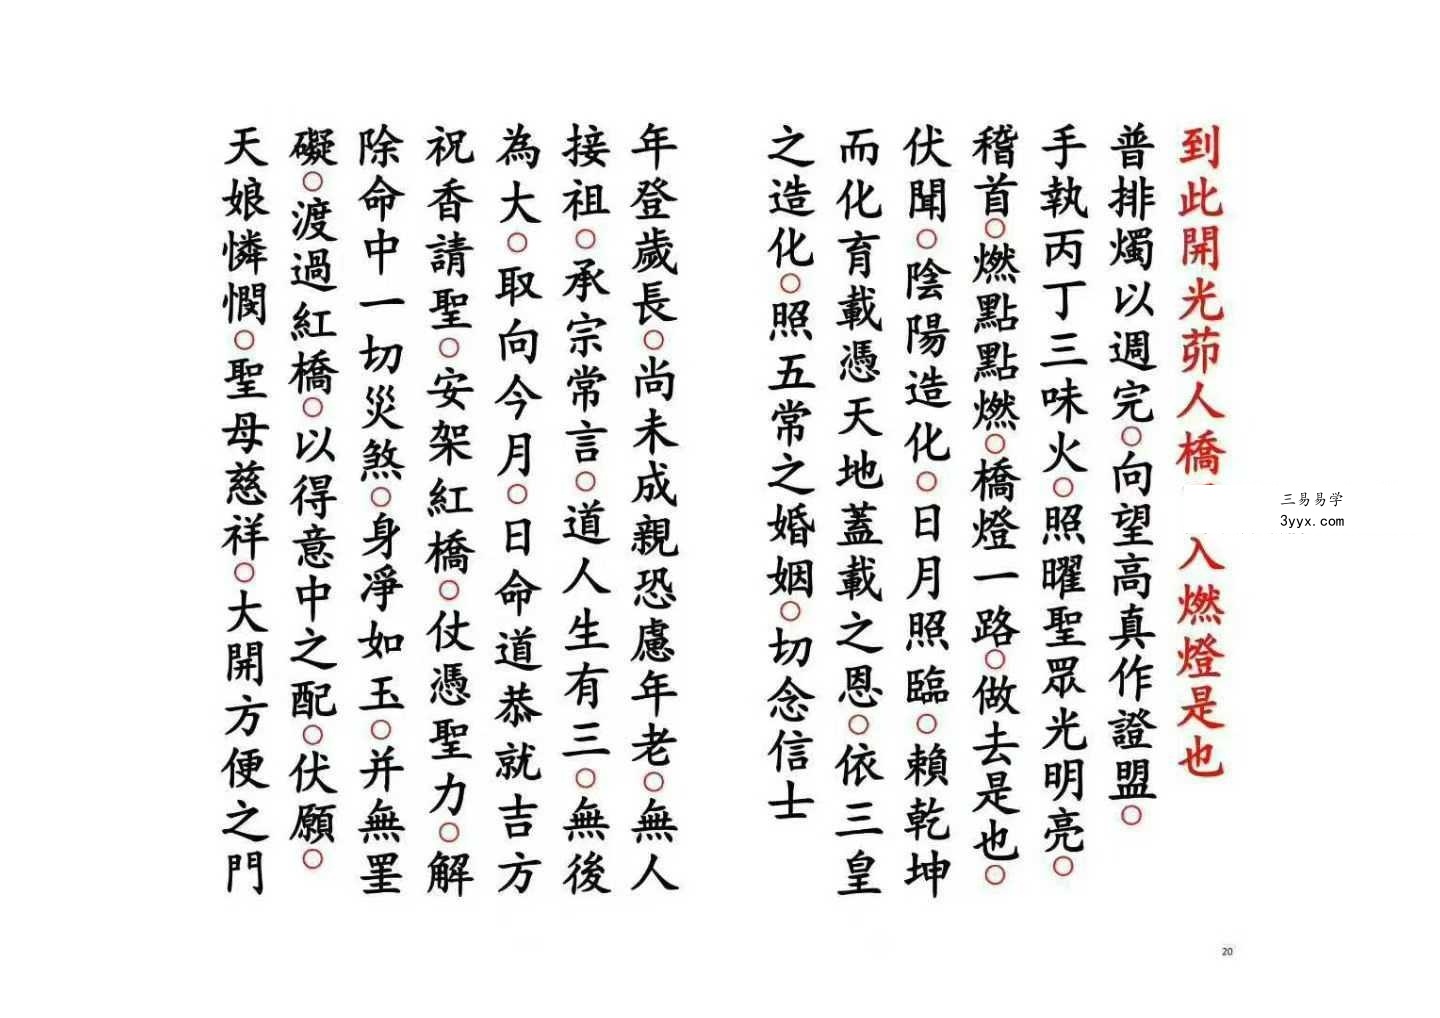 到此開光茆人橋入燃燈是也
普排燭以週完○向望高真作證盟○
手執丙丁三味火○照曜聖眾光明亮○
稽首○燃點點燃○橋燈一路○做去是也○
伏聞○陰陽造化○日月照臨○賴乾坤
而化育載憑天地蓋載之恩○依三皇
之造化○照五常之婚姻○切念信士
年登歲長○尚未成親恐慮年老○無人
接祖○承宗常言○道人生有三○無後
為大○取向今月○日命道恭就吉方
祝香請聖○安架紅橋○仗憑聖力○解
除命中一切災煞○身凈如玉○并無罣
礙○渡過紅橋○以得意中之配○伏願○
天娘憐憫○聖母慈祥○大開方便之門
三易易学
3yyx.com
20